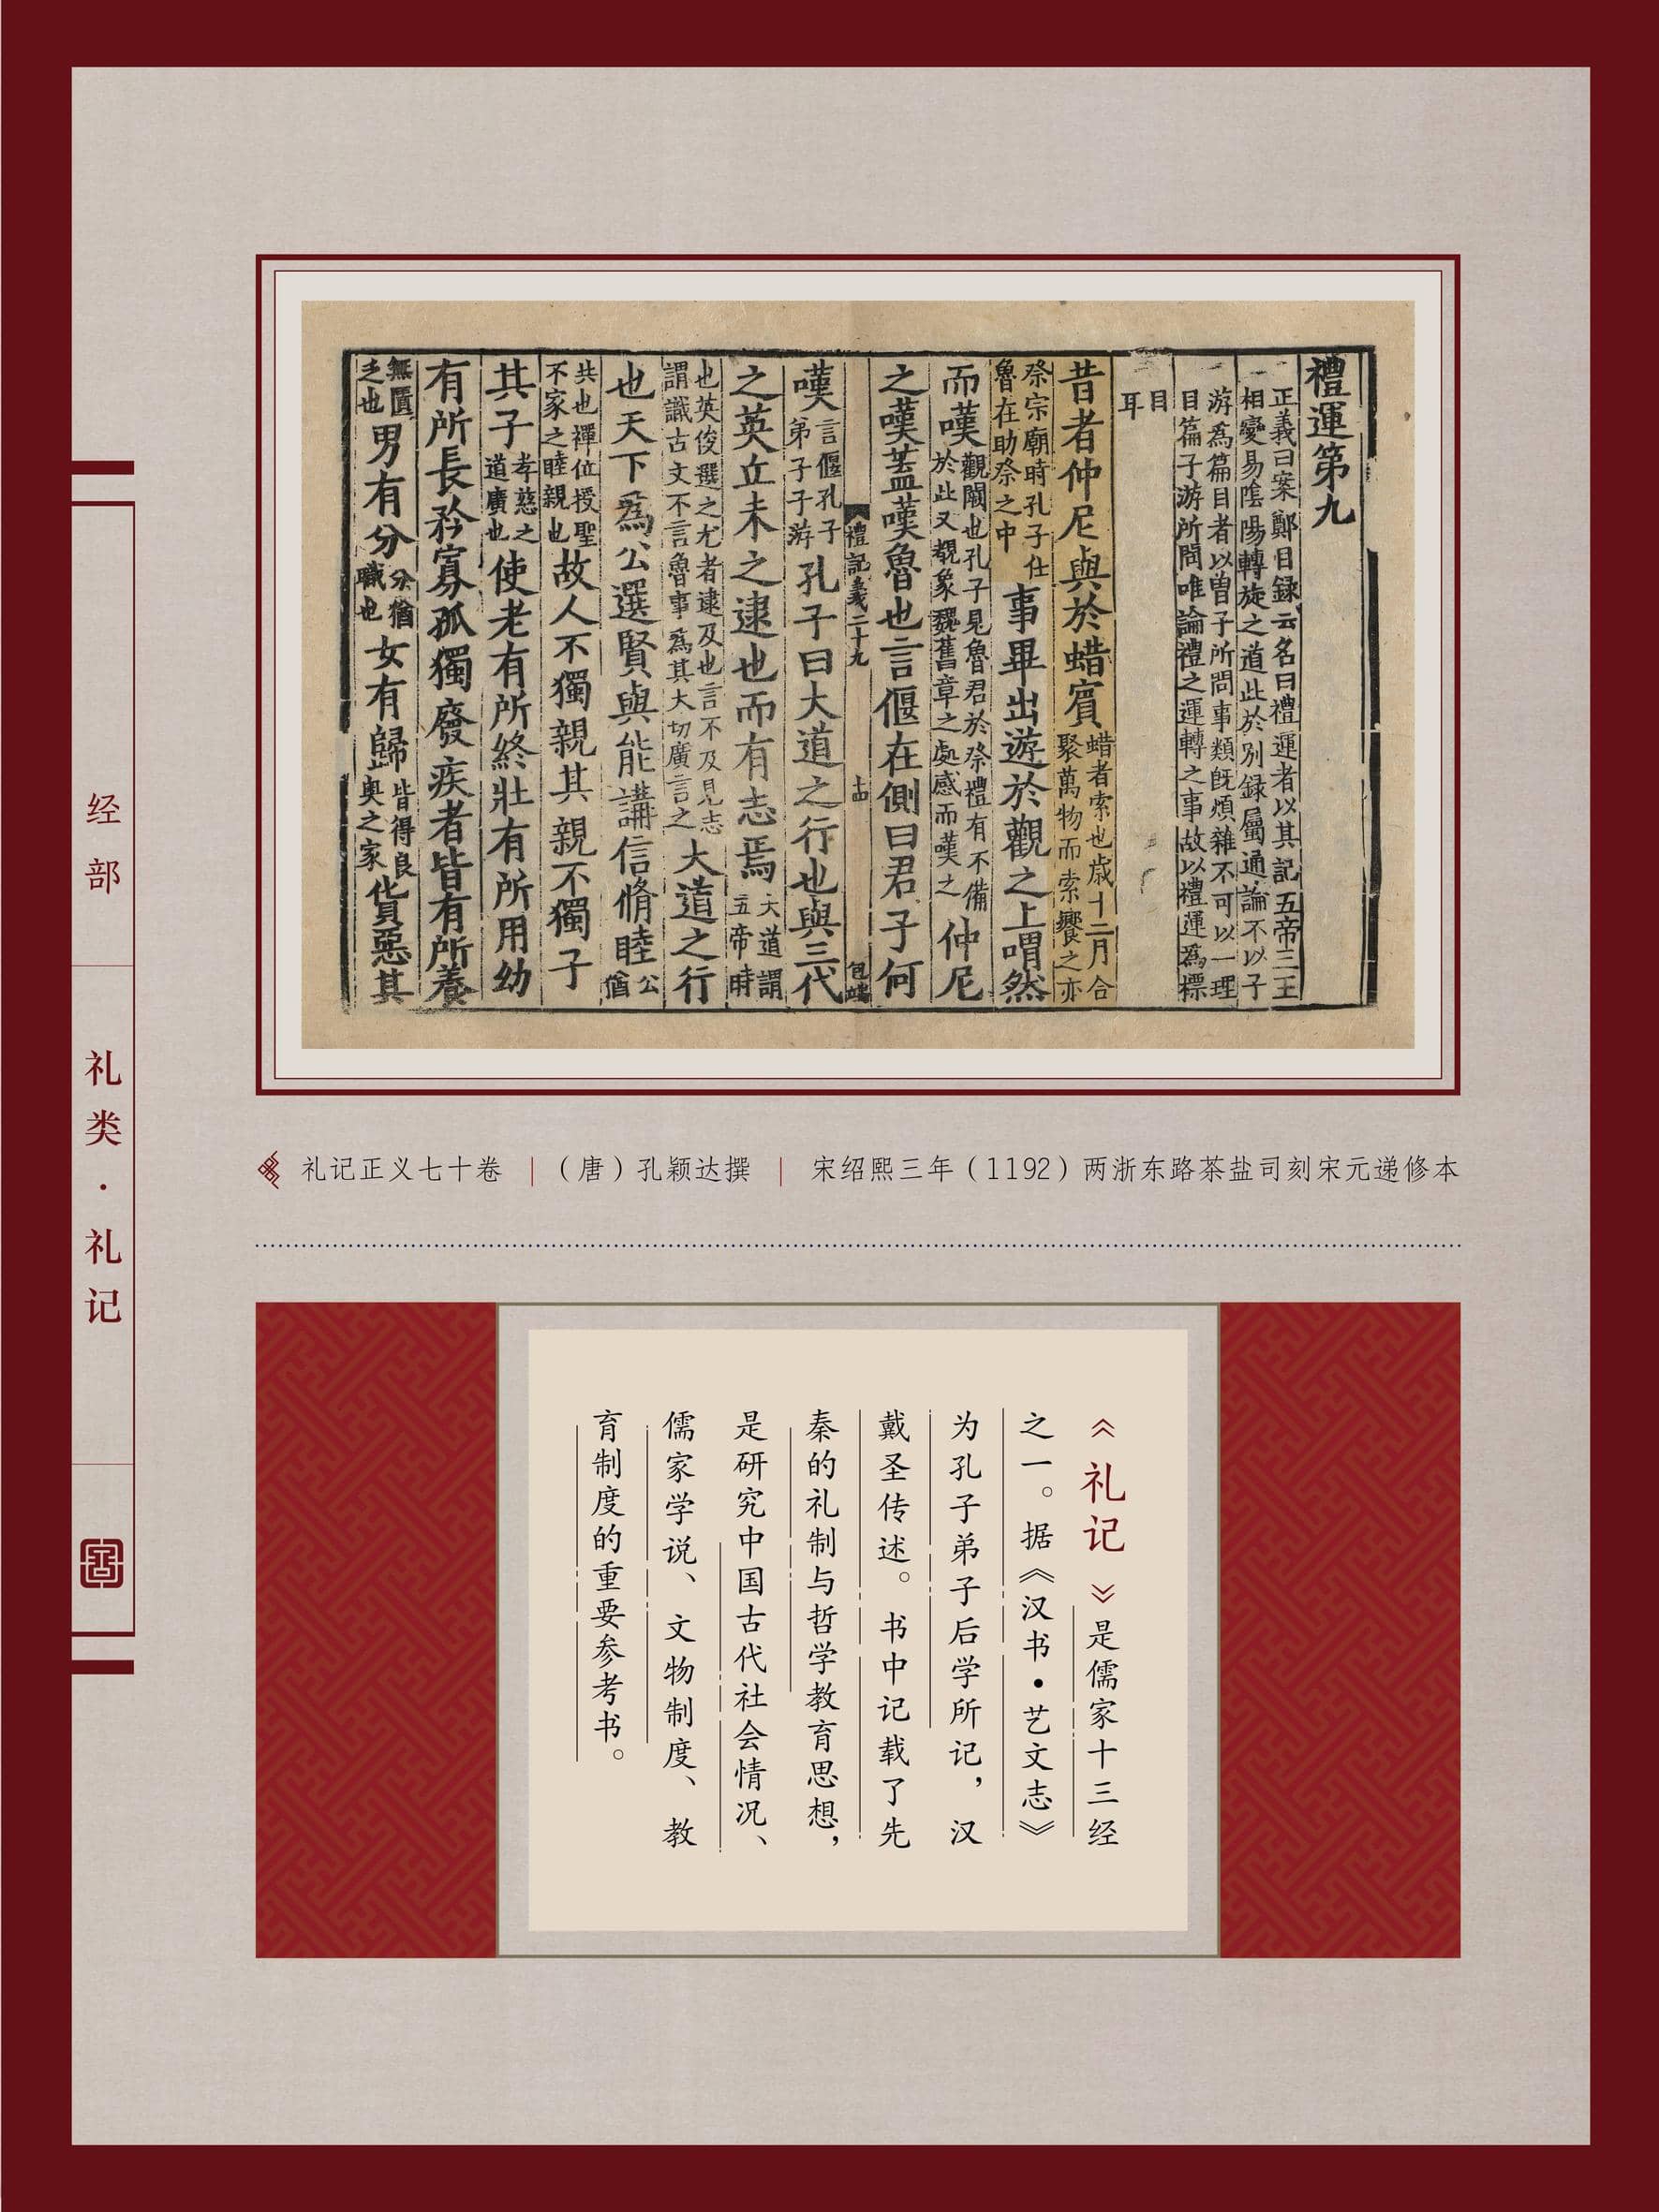 经部
礼类·礼记
禮運第九
正義曰案鄭目録云名曰禮運者以其記五帝三王
相變易隂陽轉旋之道此於别録屬通論不以子
游為篇目者以曽子所問事類旣煩雜不可以一理
目篇子游所問唯論禮之運轉之事故以禮運為標
目
耳
昔者仲尼與於蜡賓蜡者索也歳十二月合聚萬物而索饗之亦
祭宗廟時孔子仕魯在助祭之中事畢出遊於觀之上喟然
而嘆觀闕也孔子見魯君於祭禮有不備於此又覩象魏舊章之處感而嘆之仲尼
之嘆蓋嘆魯也言偃在側曰君子何
禮記義二十九
嘆言偃孔子弟子子游孔子曰大道之行也與三代
之英丘未之逮也而有志焉大道謂五帝時
也英俊選之尤者逮及也言不及見志謂識古文不言魯事為其大切廣言之大道之行
也天下爲公選賢與能講信脩睦公猶
共也禪位授聖不家之睦親也故人不獨親其親不獨子
其子孝慈之道廣也使老有所終壯有所用幼
有所長矜寡孤獨廢疾者皆有所養
無匱乏也男有分分猶職也女有歸皆得良奥之家貨惡其
礼记正义七十卷 | （唐）孔颖达撰 | 宋绍熙三年（1192）两浙东路茶盐司刻宋元递修本
《礼记》是儒家十三经
之一。据《汉书·艺文志》
为孔子弟子后学所记，汉
戴圣传述。书中记载了先
秦的礼制与哲学教育思想，
是研究中国古代社会情况、
儒家学说、文物制度、教
育制度的重要参考书。